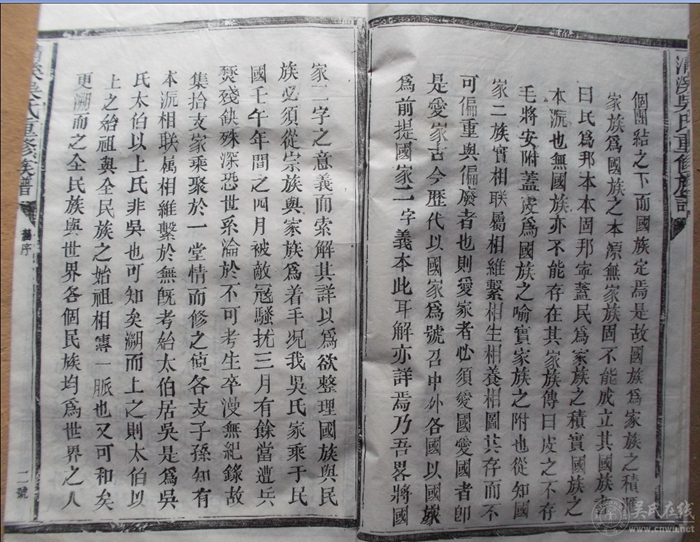 清溪吳氏重修族譜
個團結之下而國族定焉是故國族爲家族之積
家族爲國族之本源無家族固不能成立其國族
曰民爲邦本本固邦寧蓋民爲家族之積實國族之
本源也無國族亦不能存在其家族傳曰皮之不存
毛將安附蓋皮爲國族之喻實家族之附也從知國
家二族實相聯屬相維繫相生相養相圖其存而不
可偏重與偏廢者也則愛家者必須愛國愛國者即
是愛家古今歷代以國家爲號召中外各國以國族
爲前提國家二字義本此耳解亦詳焉乃吾畧將國
家二字之意義而索解其詳以爲欲整理國族與民
族必須從宗族與家族爲着手况我吳氏家乘于民
國壬午年間之四月被敵冦騷扰三月有餘當遭兵
燹殘缺殊深恐世系淪於不可考生卒漫無紀錄故
集拾支家乘聚於一堂情而修之使各支子孫知有
本源相聯属相維繫於無既考始太伯居吳是爲吳
氏太伯以上氏非吳也可知矣溯而上之則太伯以
上之始祖與全民族之始祖相傳一脈也又可和矣
更溯而之全民族與世界各個民族均爲世界之人
吳氏重修族譜
舊序
二號
吴氏在线
www.cnwu.net